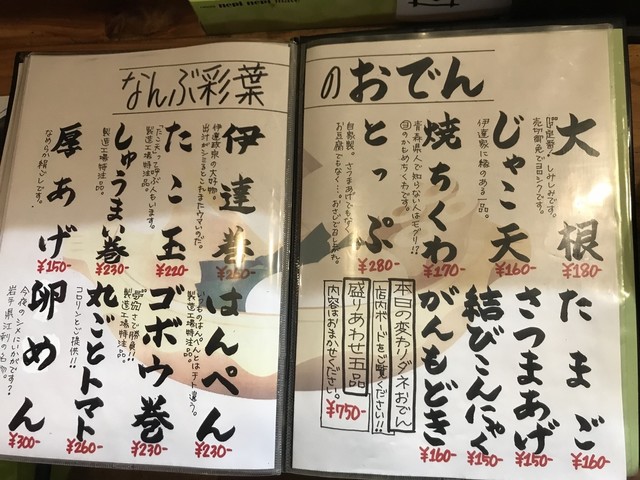 なんぶ彩葉のおでん
大根
¥180-
じゃこ天
伊達家に縁のある一品。
¥160-
焼ちくわ
青森県人で知らない人はモグリ!?
¥170-
とっぷ
自家製。さつまあげでもなく、
お豆腐でもなく…。
¥280-
たまご
¥160-
さつまあげ
¥150-
結びこんにゃく
¥150-
がんもどき
¥160-
本日の変わりダネおでん
店内ボードをご覧ください!!
盛りあわせ五品
内容はおまかせください。
¥750-
伊達巻
伊達政宗の大好物。
¥260-
たこ玉
製造工場特注品。
¥220-
しゅうまい巻
製造工場特注品。
¥230-
厚あげ
なめらか絹ごしです。
¥150-
はんぺん
¥230-
ゴボウ巻
製造工場特注品。
¥230-
丸ごとトマト
コロリンとご提供!!
¥260-
卵めん
今夜のシメにいかがです?
岩手県江刺の名物。
¥300-